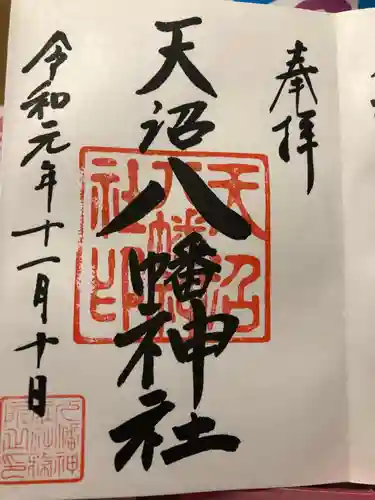 奉拝
天沼八幡神社
令和元年十一月十日
天沼八幡社印